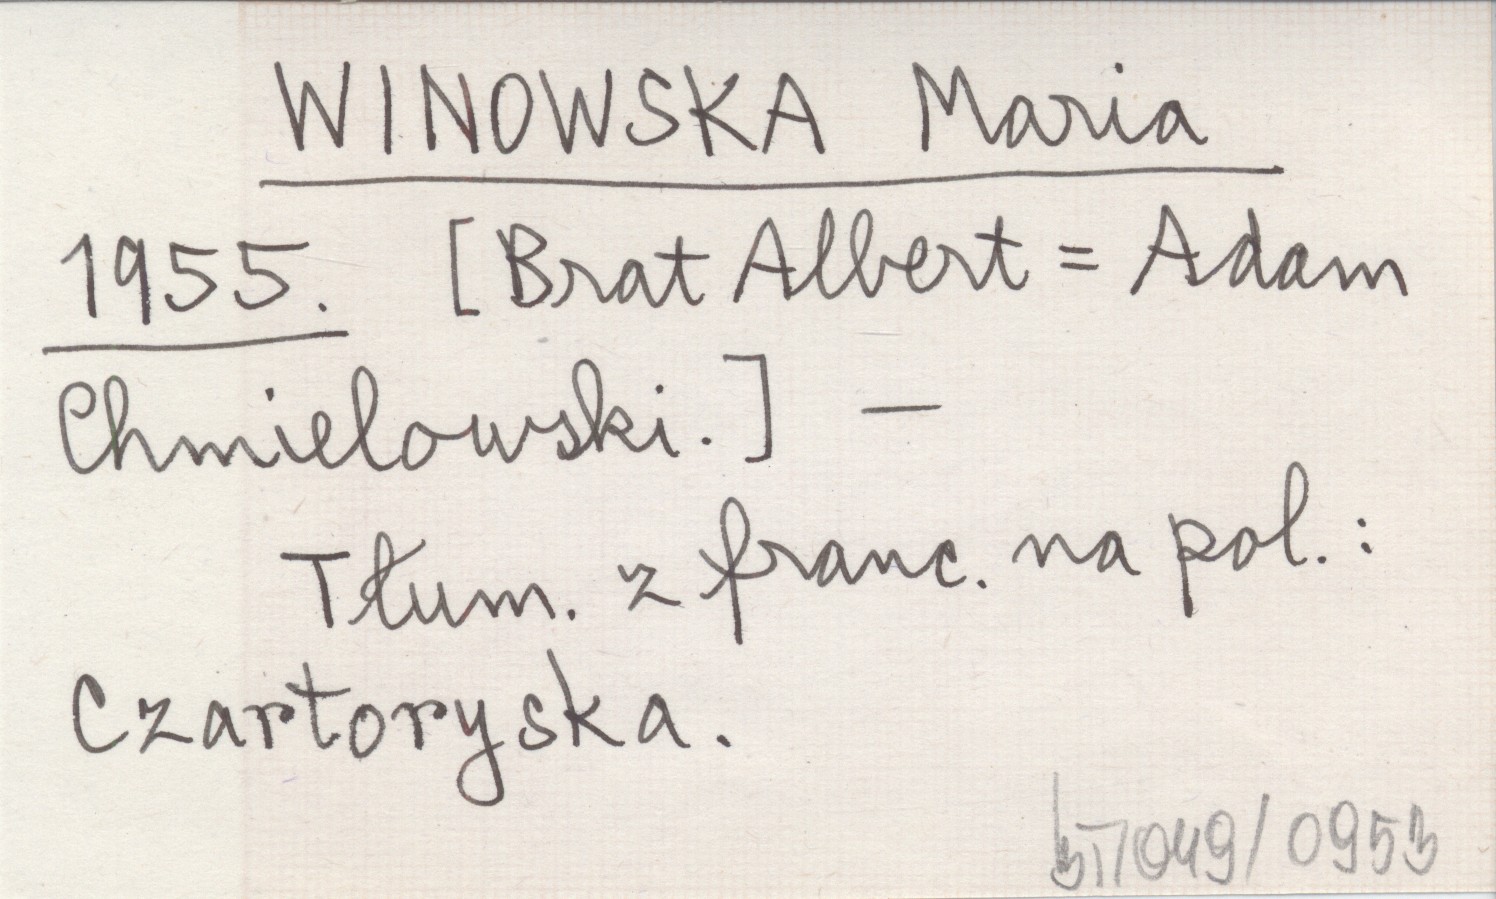 WINOWSKA Maria
1955. [Brat Albert = Adam
Chmielowski.] —
Tłum. z franc. na pol.:
Czartoryska.
049/0953